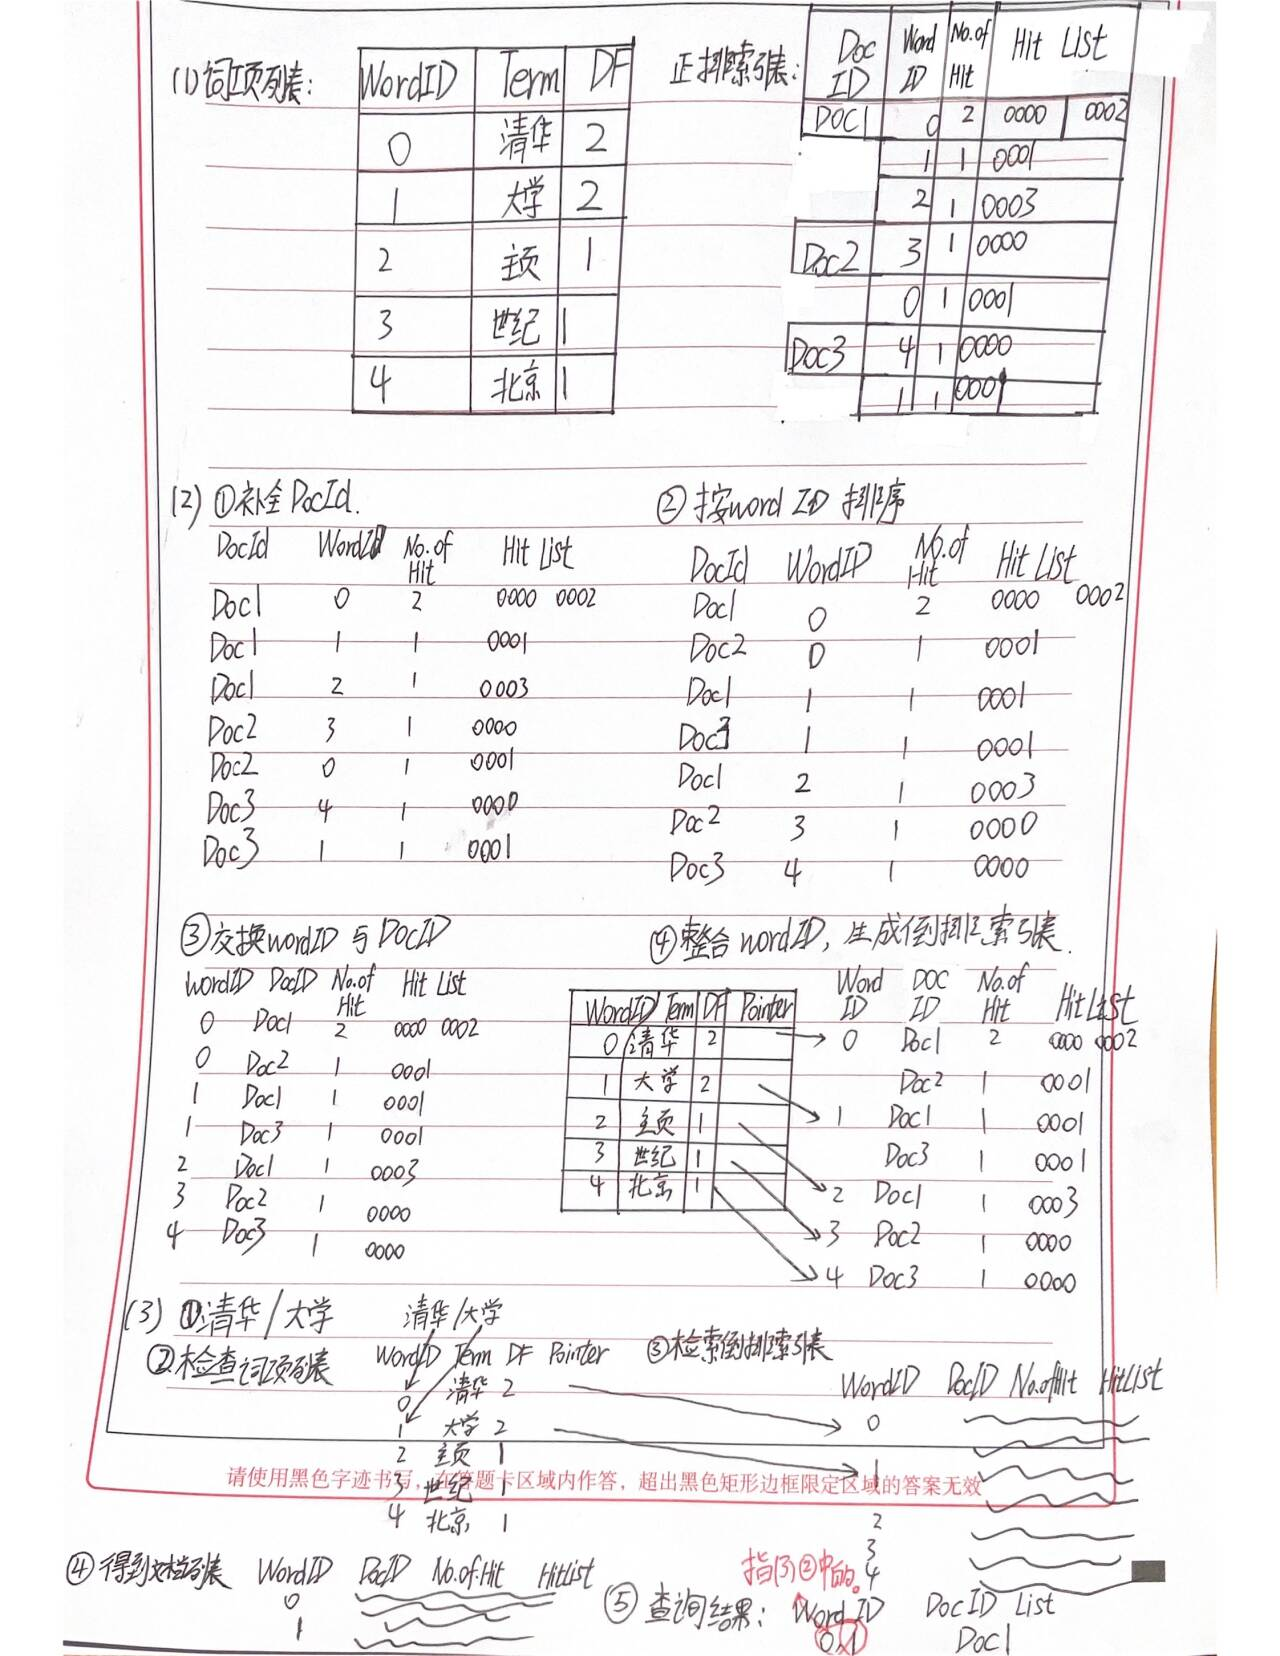 (1)词项列表:
WordID Term DF
0 清华 2
1 大学 2
2 主页 1
3 世纪 1
4 北京 1
正排索引表:
Doc ID Word ID No.of Hit Hit List
DOC1 0 2 0000 0002
1 1 0001
2 1 0003
Doc2 3 1 0000
0 1 0001
Doc3 4 1 0000
1 1 0001
(2) ①补全DocId.
DocId WordID No.of Hit Hit List
Doc1 0 2 0000 0002
Doc1 1 1 0001
Doc1 2 1 0003
Doc2 3 1 0000
Doc2 0 1 0001
Doc3 4 1 0000
Doc3 1 1 0001
②按word ID 排序
DocId WordID No.of Hit Hit List
Doc1 0 2 0000 0002
Doc2 0 1 0001
Doc1 1 1 0001
Doc3 1 1 0001
Doc1 2 1 0003
Doc2 3 1 0000
Doc3 4 1 0000
③交换wordID与DocID
WordID DocID No.of Hit Hit List
0 Doc1 2 0000 0002
0 Doc2 1 0001
1 Doc1 1 0001
1 Doc3 1 0001
2 Doc1 1 0003
3 Doc2 1 0000
4 Doc3 1 0000
④整合wordID,生成倒排索引表.
WordID Term DF Pointer
0 清华 2
1 大学 2
2 主页 1
3 世纪 1
4 北京 1
Word ID DOC ID No.of Hit Hit List
0 Doc1 2 0000 0002
Doc2 1 0001
1 Doc1 1 0001
Doc3 1 0001
2 Doc1 1 0003
3 Doc2 1 0000
4 Doc3 1 0000
(3) ①清华/大学
清华/大学
②检查词项列表
WordID Term DF Pointer
0 清华 2
1 大学 2
2 主页 1
3 世纪 1
4 北京 1
③检索倒排索引表
WordID DocID No.ofHit HitList
0
1
2
3
4
请使用黑色字迹书写,在答题卡区域内作答,超出黑色矩形边框限定区域的答案无效
④得到文档列表
WordID DocID No.of.Hit HitList
0
1
指(3)②中的。
⑤查询结果:
WordID DocID List
0,1 Doc1